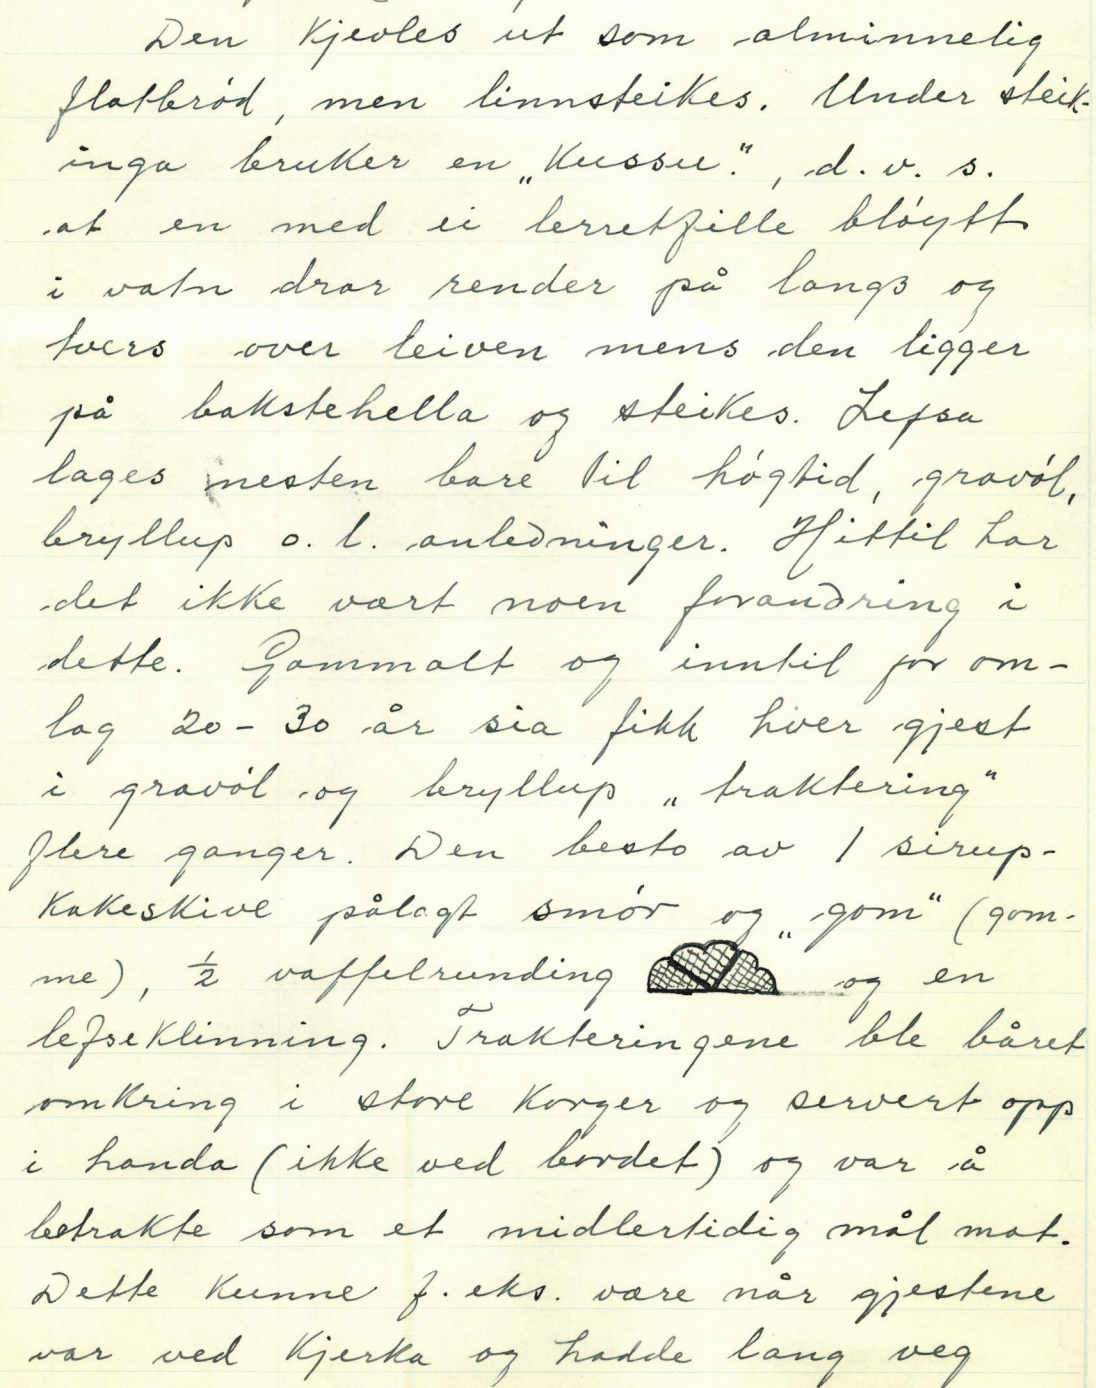 Den kjevles ut som alminnelig
flatbród, men linnsteikes. Under steik-
inga bruker en „kussu“, d. v. s.
at en med ei lerretfille blóytt
i vatn drar render på langs og
tvers over leiven mens den ligger
på bakstehella og steikes. Lefsa
lages nesten bare til hógtid, gravól,
bryllup o. l. anledninger. Hittil har
det ikke vært noen forandring i
dette. Gammalt og inntil for om-
lag 20-30 år sia fikk hver gjest
i gravól og bryllup „traktering“
flere ganger. Den besto av 1 sirup-
kakeskive pålagt smór og „gom“ (gom-
me), ½ vaffelrunding og en
lefseklinning. Trakteringene ble båret
omkring i store korger og servert opp
i handa (ikke ved bordet) og var å
betrakte som et midlertidig mål mat.
Dette kunne f. eks. være når gjestene
var ved kjerka og hadde lang veg